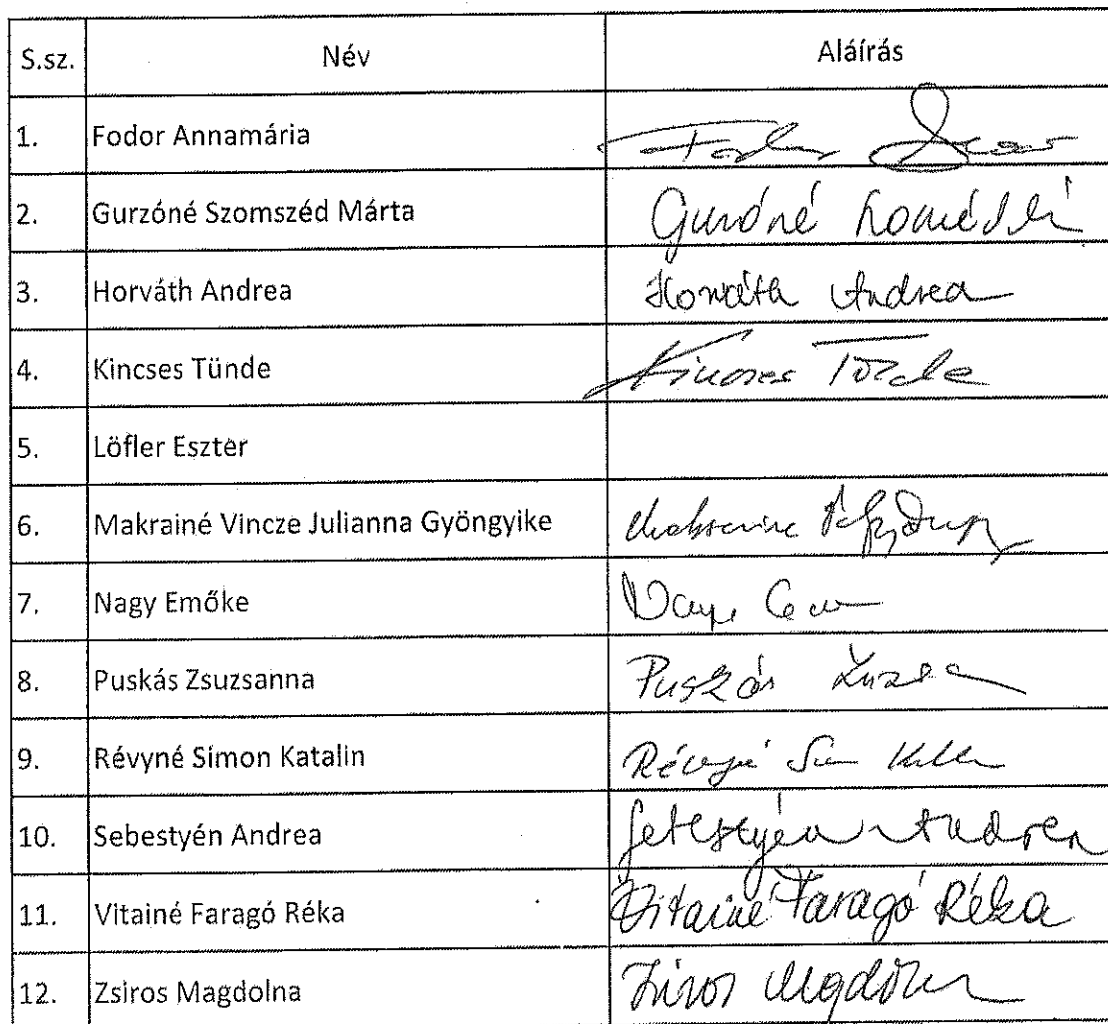 S.sz. Név Aláírás
1. Fodor Annamária Fodor
2. Gurzóné Szomszéd Márta Gurzóné
3. Horváth Andrea Horváth Andrea
4. Kincses Tünde Kincses Tünde
5. Löfler Eszter
6. Makrainé Vincze Julianna Gyöngyike Makrainé
7. Nagy Emőke Nagy
8. Puskás Zsuzsanna Puskás Zsuzsa
9. Révyné Simon Katalin Révyné
10. Sebestyén Andrea Sebestyén Andrea
11. Vitainé Faragó Réka Vitainé Faragó Réka
12. Zsiros Magdolna Zsiros Magdolna